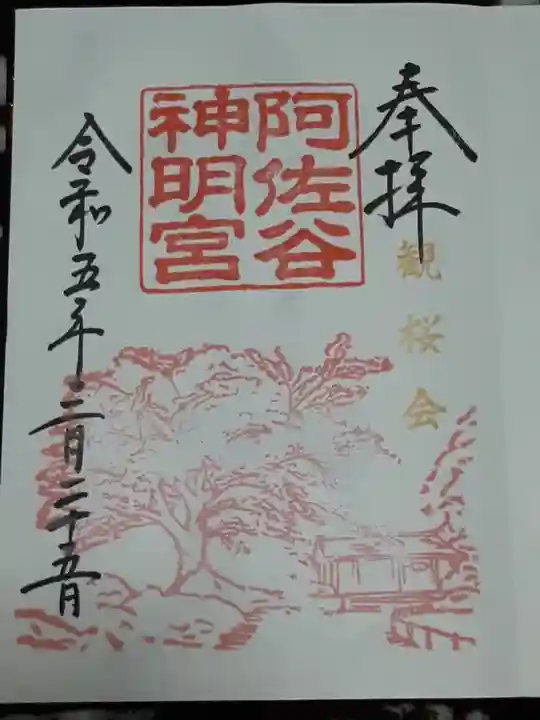 奉拝
観桜会
阿佐谷
神明宮
令和五年三月二十五日